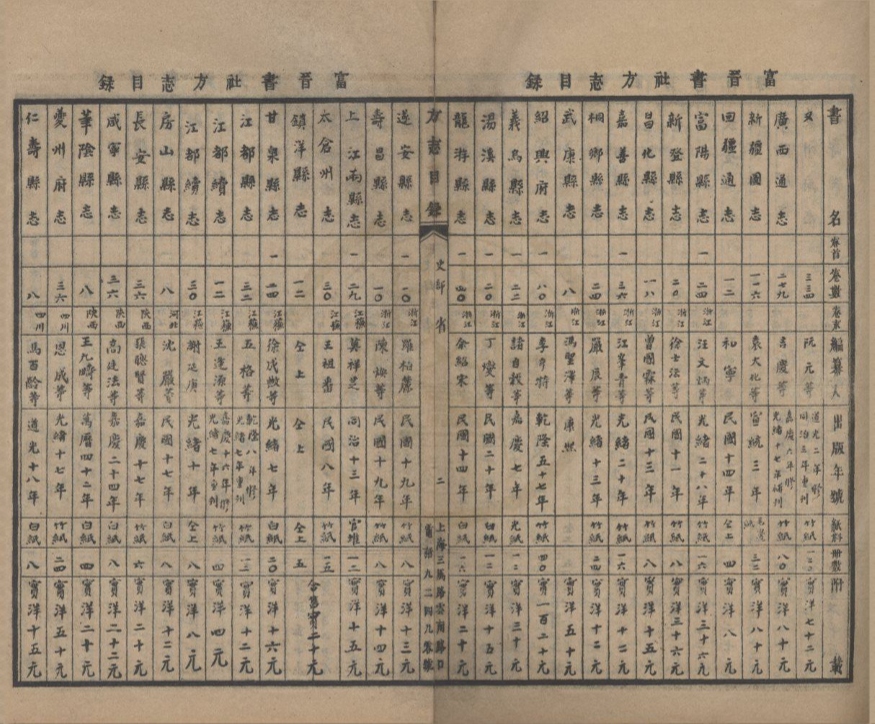 富晉書社方志目錄
書名 卷首 卷數 卷末 編纂人 出版年號 紙料 冊數 附載
又 三三四 阮元等 道光二年修同治三年重刊 竹紙 實洋七十二元
廣西通志 二七九 吉慶等 嘉慶六年修光緒十七年補刊 竹紙 八〇 實洋八十元
新疆圖志 一一六 袁大化等 宣統三年 三二 實洋八十元
回疆通志 一二 和寧 民國十四年 仝上 四 實洋八元
富陽縣志 一 二四 浙江 汪文炳等 光緒二十八年 竹紙 一六 實洋三十六元
新登縣志 二〇 浙江 徐士瀛等 民國十一年 竹紙 實洋三十六元
昌化縣志 一八 浙江 曾國霖等 民國十三年 竹紙 八 實洋十五元
嘉善縣志 一 三六 浙江 江峯青等 光緒二十年 竹紙 一六 實洋十二元
桐鄉縣志 二四 浙江 嚴辰等 光緒十三年 竹紙 二四 實洋十二元
武康縣志 八 浙江 馮聖澤等 康熙 實洋五十元
紹興府志 一 八〇 浙江 李亨特 乾隆五十七年 竹紙 四〇 實一百二十元
義烏縣志 一 二二 浙江 諸自穀等 嘉慶七年 光紙 一二 實洋三十元
湯溪縣志 一 二〇 浙江 丁燮等 民國二十年 白紙 一二 實洋十五元
龍游縣志 一 四〇 浙江 余紹宋 民國十四年 白紙 一六 實洋二十元
方志目錄 史部 省 二 上海三馬路雲南路口 電話九二四九八號
富晉書社方志目錄
遂安縣志 一 一〇 浙江 羅柏麓等 民國十九年 竹紙 八 實洋十三元
壽昌縣志 一 一〇 浙江 陳煥等 民國十九年 竹紙 八 實洋十四元
上江兩縣志 一 二九 江蘇 莫祥芝 同治十三年 官堆 一二 實洋十五元
太倉州志 三〇 江蘇 王祖畬 民國八年 竹紙 一五 合售實二十元
鎮洋縣志 一二 仝上 仝上 仝上 五
甘泉縣志 一 二四 江蘇 徐成敟等 光緒七年 白紙 二〇 實洋十六元
江都縣志 三二 江蘇 五格等 乾隆八年修光緒七年重刊 竹紙 一二 實洋十二元
江都縣續志 一二 江蘇 王逢源等 嘉慶十六年修光緒七年重刊 竹紙 四 實洋四元
江都縣續志 三〇 江蘇 謝延庚 光緒十年 仝上 八 實洋八元
房山縣志 八 河北 沈嚴等 民國十七年 白紙 八 實洋十二元
長安縣志 三六 陝西 張聰賢等 嘉慶十七年 竹紙 六 實洋二十元
咸寧縣志 三六 陝西 高廷法等 嘉慶二十四年 白紙 八 實洋二十二元
華陰縣志 八 陝西 王九疇等 萬曆四十二年 白紙 四 實洋二十元
夔州府志 三六 四川 恩成等 光緒十七年 竹紙 二四 實洋五十元
仁壽縣志 八 四川 馬百齡等 道光十八年 白紙 八 實洋十五元